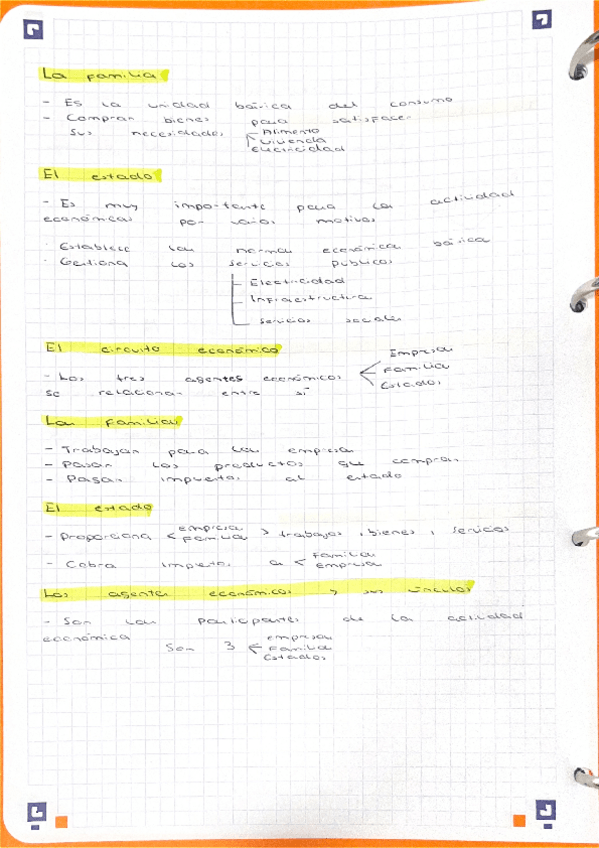 La familia
- Es la unidad básica del consumo
- Compran bienes para satisfacer
sus necesidades Alimento
vivienda
Electricidad
El estado
- Es muy importante para la actividad
económicas por varios motivos
· Establece las normas económica básica
· Gestiona los servicios públicos
Electricidad
Infraestructura
servicios sociales
El circuito económico
Empresa
- Los tres agentes económicos Familia
se relacionan entre sí Estados
Las familias
- Trabajan para las empresas
- Pasan los productos que compran
- Pagan impuestos al estado
El estado
empresa
- Proporciona < familia > trabajos, bienes, servicios
- Cobra impuestos a < Familia
empresa
Los agentes económicos y sus vínculos
- Son los participantes de la actividad
económica
Son 3 empresas
Familia
Estados